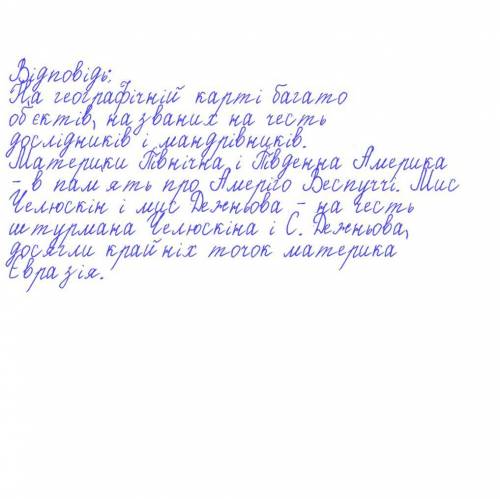 Відповідь:
На географічній карті багато
об'єктів, названих на честь
дослідників і мандрівників.
Материки Північна і Південна Америка
- в пам'ять про Амеріго Веспуччі. Мис
Челюскін і мис Дежньова - на честь
штурмана Челюскіна і С. Дежньова,
досягли крайніх точок материка
Євразія.